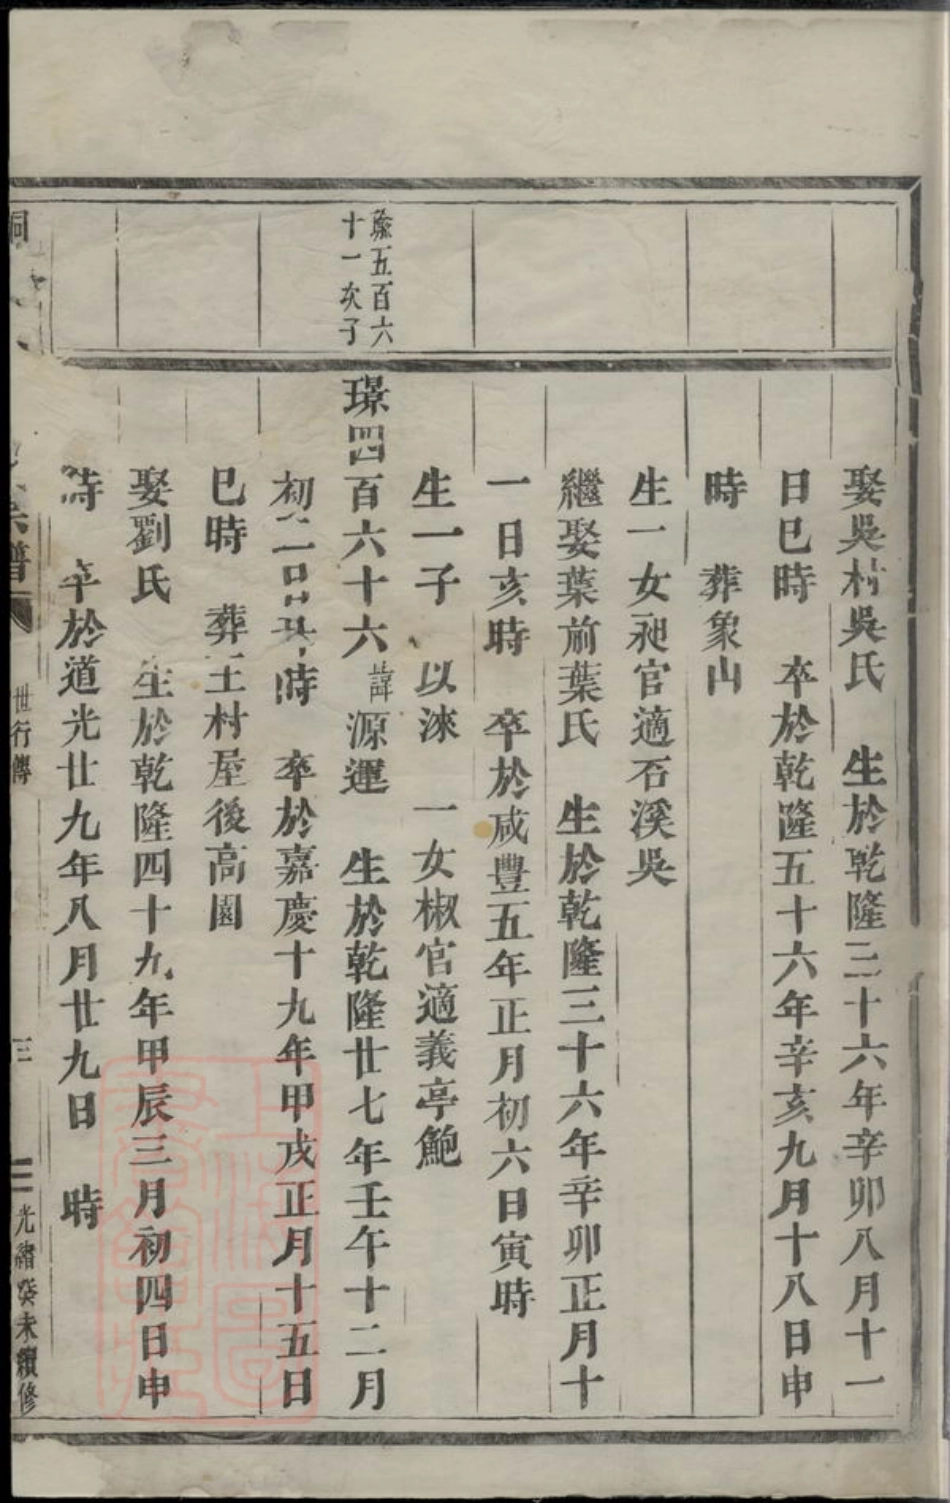 娶吳村吳氏　生於乾隆三十六年辛卯八月十一
日巳時　卒於乾隆五十六年辛亥九月十八日申
時　葬象山
生一女昶官適石溪吳
繼娶葉前葉氏　生於乾隆三十六年辛卯正月十
一日亥時　卒於咸豐五年正月初六日寅時
生一子　以淶　一女椒官適義亭鮑
五百六
十一次子
璟四百六十六諱源運　生於乾隆廿七年壬午十二月
初二日　時　卒於嘉慶十九年甲戌正月十五日
巳時　葬王村屋後高園
娶劉氏　生於乾隆四十九年甲辰三月初四日申
時　卒於道光廿九年八月廿九日　時
宗譜　世行傳　三　光緒癸未續修